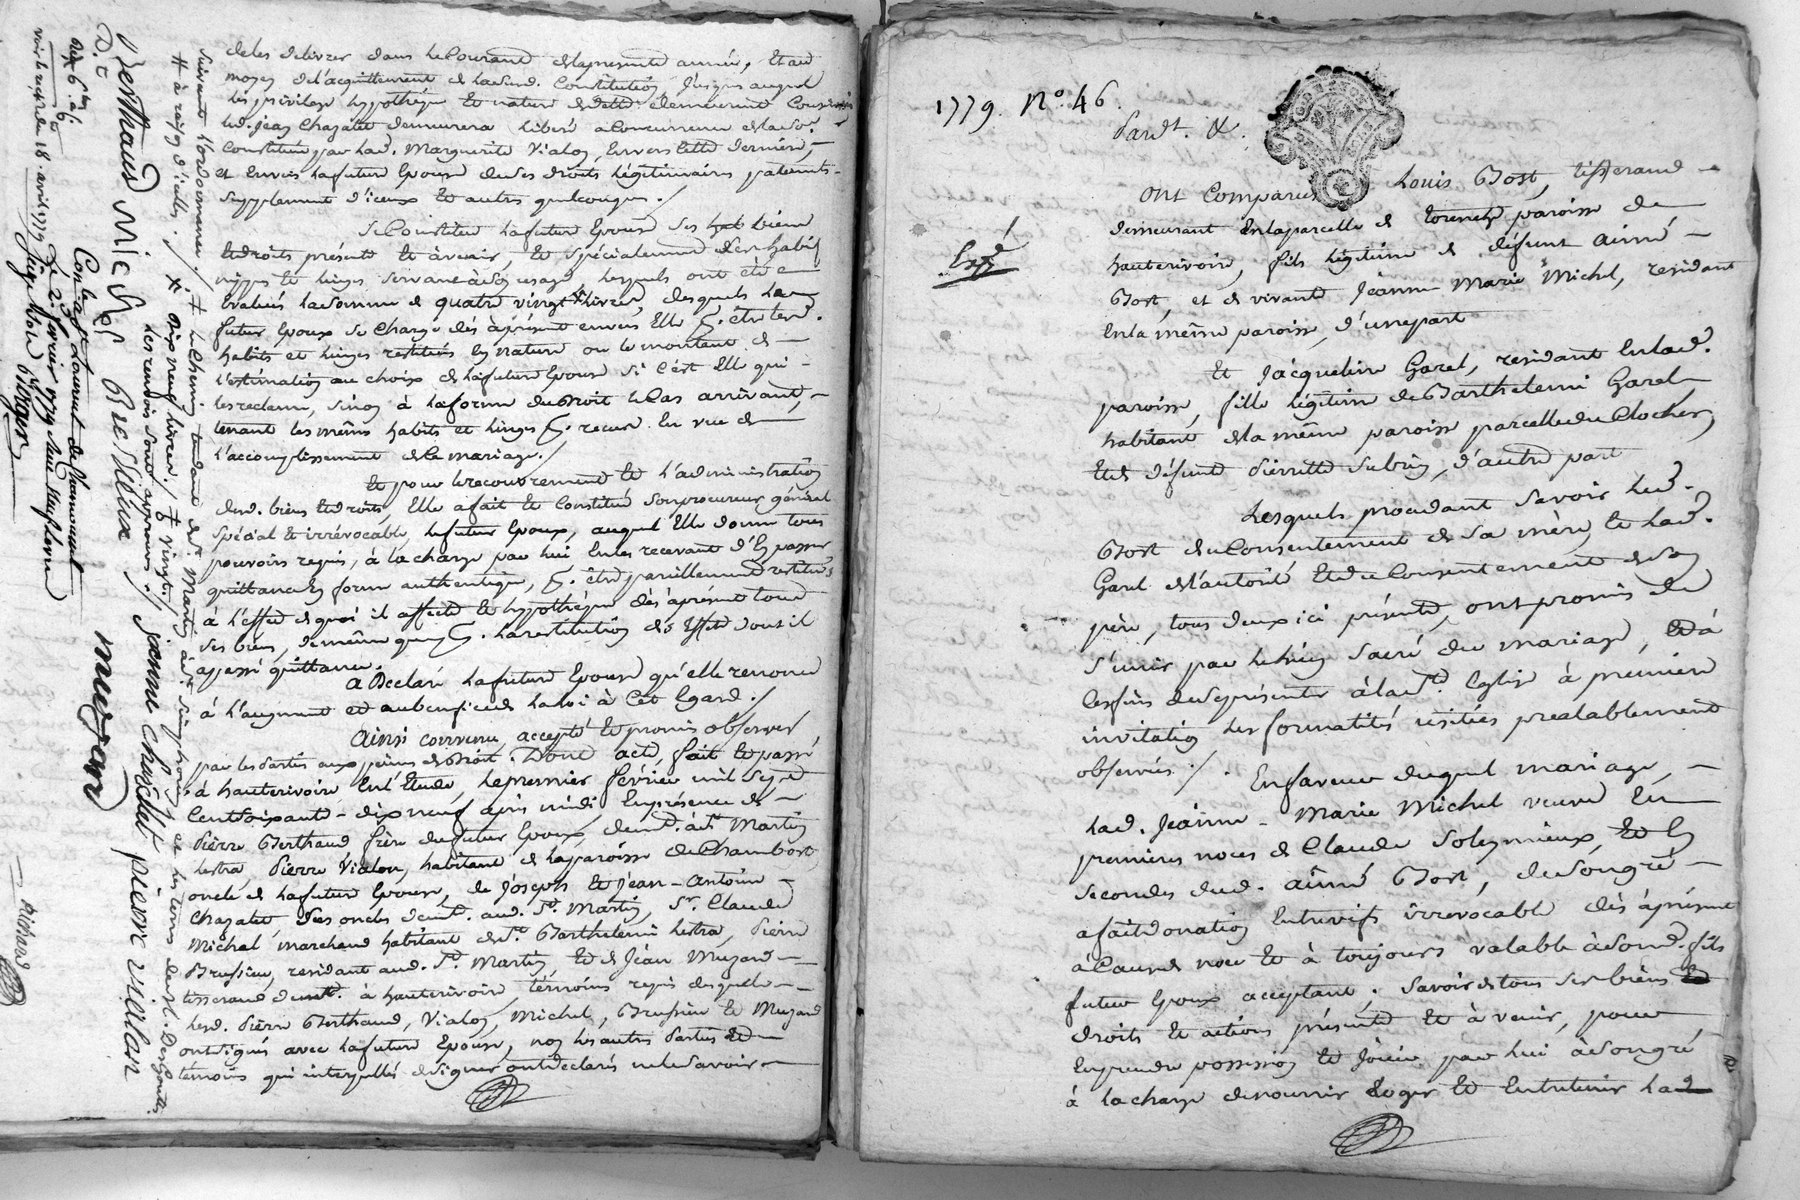 de les delivrer dans le Courant de la presente année, Et au
moyen de l'acquittement de lad. Constitution jusques auquel
les privilege hypothéque Et nature de dette demeurent Conservés
led. jean Chazalet demeurera libéré a Concurrence de lad.
Constitution par lad. Marguerite Vialon, Envers cette derniere,
et Envers la future Epouse de ses droits légitimaires paternels
Supplement d'iceux Et autres quelconques ./
Se Constitue la future Epouse ses biens
Et droits présents Et à venir, Et spécialement ses habits
nippes Et linges servant à son usage lesquels ont été
Evalués la somme de quatre vingt livres, desquels le
futur Epoux se Charge dès à présent envers Elle p. être lesd.
habits et linges restitués En nature ou le montant de
l'estimation au choix de la future Epouse si c'est Elle qui
les reclame, sinon à la forme du Droit le Cas arrivant,
tenant les mêmes habits et linges p. recus En vue de
l'accomplissement de Ce mariage ./
Et pour le recouvrement Et l'administration
desd. biens Et droits, Elle a fait Et Constitué son procureur général
spécial Et irrévocable, le futur Epoux, auquel Elle donne tous
pouvoirs requis, à la charge par lui En les recevant d'En passer
quittance En forme authentique, p. être pareillement restitués
à l'effet de quoi il affecte Et hypothéque dès à présent tous
ses biens, de même que p. la restitution des Effets dont il
a passé quittance.
a Declaré la future Epouse qu'elle renonce
à l'augment et au benefice de la loi à Cet Egard ./
Ainsi convenu accepté Et promis observer
par les Parties aux peines de Droit. Dont acte, fait Et passé
à hauterivoire En l'Etude, le premier février mil sept
Cent soixante-dix neuf après midi En présence de
Pierre Berthaud frère du futur Epoux, demt. à St Martin
lestra, Pierre Vialon, habitant de la paroisse de Chambost
oncle de la future Epouse, de Joseph Et jean-Antoine
Chazalet Ses oncles demt. aud. St. Martin, Sr. Claude
Michel marchand habitant de St. Barthelemi lestra, Pierre
Brussieu, residant aud. St. Martin Et de Jean Muzard
tisserand demt. à hauterivoire, témoins requis desquels
lesd. Pierre Berthaud, Vialon, Michel, Brussieu Et Muzard
ont signés avec la future Epouse, non les autres Parties Et
témoins qui interpellés de signer ont déclarés ne le savoir
Suivant l'ordonnance ./. le Chemin tendant de St. Martin à
# à raison d'icelles ./ * dix neuf livres ./ vingt ./
les renvois sont approuvés ./ janne chazellet pierre vialon
Berthaud Michel Brussieux Muzard
Conlé à St Laurent de Chamousset
Le 2. fevrier 1779 Reçu
voir le recipde 18. avril 1779
Richard
1779. N°. 46.
Pardt. &.
Ont Comparus Louis Bost, tisserand
demeurant En la parcelle de paroisse de
hauterivoire, fils légitime de défunt Aimé
Bost, et de vivante Jeanne Marie Michel, residant
En la même paroisse, d'une part
Et Jacqueline Garel, residant En lad.
paroisse, fille légitime de Barthelemi Garel
habitant de la même paroisse parcelle du Clocher
Et de défunte Pierrette Subrin, d'autre part
Expé
Lesquels procedant savoir led.
Bost du Consentement de sa mère, Et lad.
Garel de l'autorité Et du Consentement de son
père, tous deux ici présents, ont promis de
s'unir par le lien sacré du mariage, Et à
Ces fins de se présenter à la Ste. Eglise à premiere
invitation les formalités usitées prealablement
observées ./.
En faveur duquel mariage,
lad. Jeanne-Marie Michel veuve En
premieres noces de Claude Soleymieux, Et En
secondes dud. Aimé Bost, de son gré
a fait donation Entrevifs irrevocable dès à présent
à Cause de noce Et à toujours valable à sond. fils
futur Epoux acceptant; Savoir de tous ses biens
droits Et actions présents Et à venir, pour
En prendre possession Et Jouir par lui à son gré,
à la charge de nourrir loger Et Entretenir lad